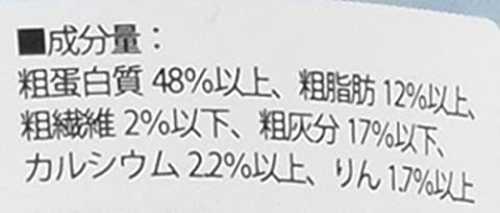 ■成分量：
粗蛋白質 48%以上、粗脂肪 12%以上、
粗繊維 2%以下、粗灰分 17%以下、
カルシウム 2.2%以上、りん 1.7%以上